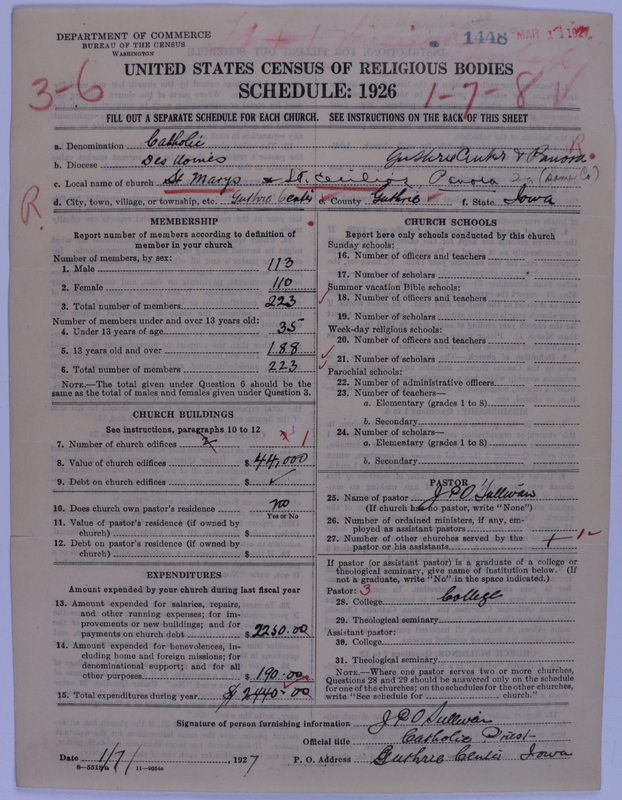 DEPARTMENT OF COMMERCE
BUREAU OF THE CENSUS
WASHINGTON
1448 MAR 11 1927
UNITED STATES CENSUS OF RELIGIOUS BODIES
SCHEDULE: 1926
3-6
1-7-8
FILL OUT A SEPARATE SCHEDULE FOR EACH CHURCH. SEE INSTRUCTIONS ON THE BACK OF THIS SHEET
a. Denomination Catholic
b. Diocese Des Moines Guthrie Center & Panora R.
c. Local name of church St Marys & St. Cecilias, Panora
R.
d. City, town, village, or township, etc. Guthrie Center e. County Guthrie f. State Iowa
MEMBERSHIP
Report number of members according to definition of member in your church
Number of members, by sex:
1. Male 113
2. Female 110
3. Total number of members 223
Number of members under and over 13 years old:
4. Under 13 years of age 35
5. 13 years old and over 188
6. Total number of members 223
NOTE.—The total given under Question 6 should be the
same as the total of males and females given under Question 3.
CHURCH BUILDINGS
See instructions, paragraphs 10 to 12
7. Number of church edifices 2 1
8. Value of church edifices $ 44,000
9. Debt on church edifices $
10. Does church own pastor's residence no
Yes or No
11. Value of pastor's residence (if owned by
church) $
12. Debt on pastor's residence (if owned by
church) $
EXPENDITURES
Amount expended by your church during last fiscal year
13. Amount expended for salaries, repairs,
and other running expenses; for im-
provements or new buildings; and for
payments on church debt $ 2250.00
14. Amount expended for benevolences, in-
cluding home and foreign missions; for
denominational support; and for all
other purposes $ 190.00
15. Total expenditures during year $ 2440.00
CHURCH SCHOOLS
Report here only schools conducted by this church
Sunday schools:
16. Number of officers and teachers
17. Number of scholars
Summer vacation Bible schools:
18. Number of officers and teachers
19. Number of scholars
Week-day religious schools:
20. Number of officers and teachers
21. Number of scholars
Parochial schools:
22. Number of administrative officers
23. Number of teachers—
a. Elementary (grades 1 to 8)
b. Secondary
24. Number of scholars—
a. Elementary (grades 1 to 8)
b. Secondary
PASTOR
25. Name of pastor J P O'Sullivan
(If church has no pastor, write "None")
26. Number of ordained ministers, if any, em-
ployed as assistant pastors
27. Number of other churches served by the
pastor or his assistants
If pastor (or assistant pastor) is a graduate of a college or
theological seminary, give name of institution below. (If
not a graduate, write "No" in the space indicated.)
Pastor: 3
28. College College
29. Theological seminary
Assistant pastor:
30. College
31. Theological seminary
NOTE.—Where one pastor serves two or more churches,
Questions 28 and 29 should be answered only on the schedule
for one of the churches; on the schedules for the other churches,
write "See schedule for ............ church."
Signature of person furnishing information J P O Sullivan
Official title Catholic Priest
Date 1/7/, 1927 P. O. Address Guthrie Center Iowa
8—5518a 11—9054a